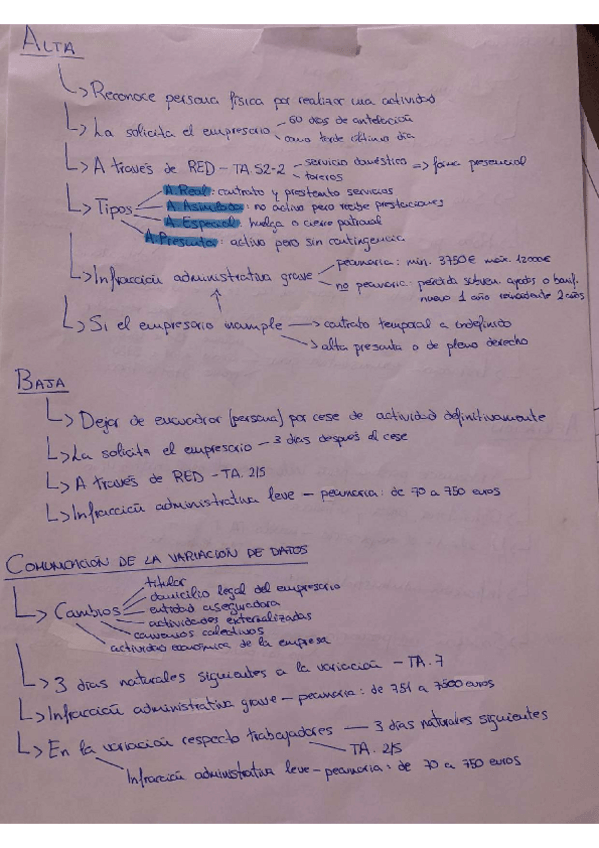 ALTA
Reconoce persona física por realizar una actividad
La solicita el empresario - 60 días de antelación
- como tarde último día
A través de RED - TA S2-2 - servicio doméstico => forma presencial
- toreros
Tipos
A. Real: contrato y prestamto servicios
A. Asimilada: no activo pero recibe prestaciones
A. Especial: huelga o cierre patronal
A. Presunta: activo pero sin contingencia
Infracción administrativa grave - pecuniaria: min. 3750€ max. 12000€
no pecuniaria: pérdida subven. ayudas o bonif.
nuevo 1 año 2 años
Si el empresario incumple -> contrato temporal a indefinido
-> alta presunta o de pleno derecho
BAJA
Dejar de encuadrar (persona) por cese de actividad definitivamente
La solicita el empresario - 3 días después del cese
A través de RED - TA. 2/S
Infracción administrativa leve - pecuniaria: de 70 a 750 euros
COMUNICACIÓN DE LA VARIACIÓN DE DATOS
Cambios
titular
domicilio legal del empresario
entidad aseguradora
actividades externalizadas
convenios colectivos
actividad económica de la empresa
3 días naturales siguientes a la variación - TA. 7
Infracción administrativa grave - pecuniaria: de 751 a 7500 euros
En la variación respecto trabajadores - 3 días naturales siguientes
- TA. 2/S
Infracción administrativa leve - pecuniaria: de 70 a 750 euros